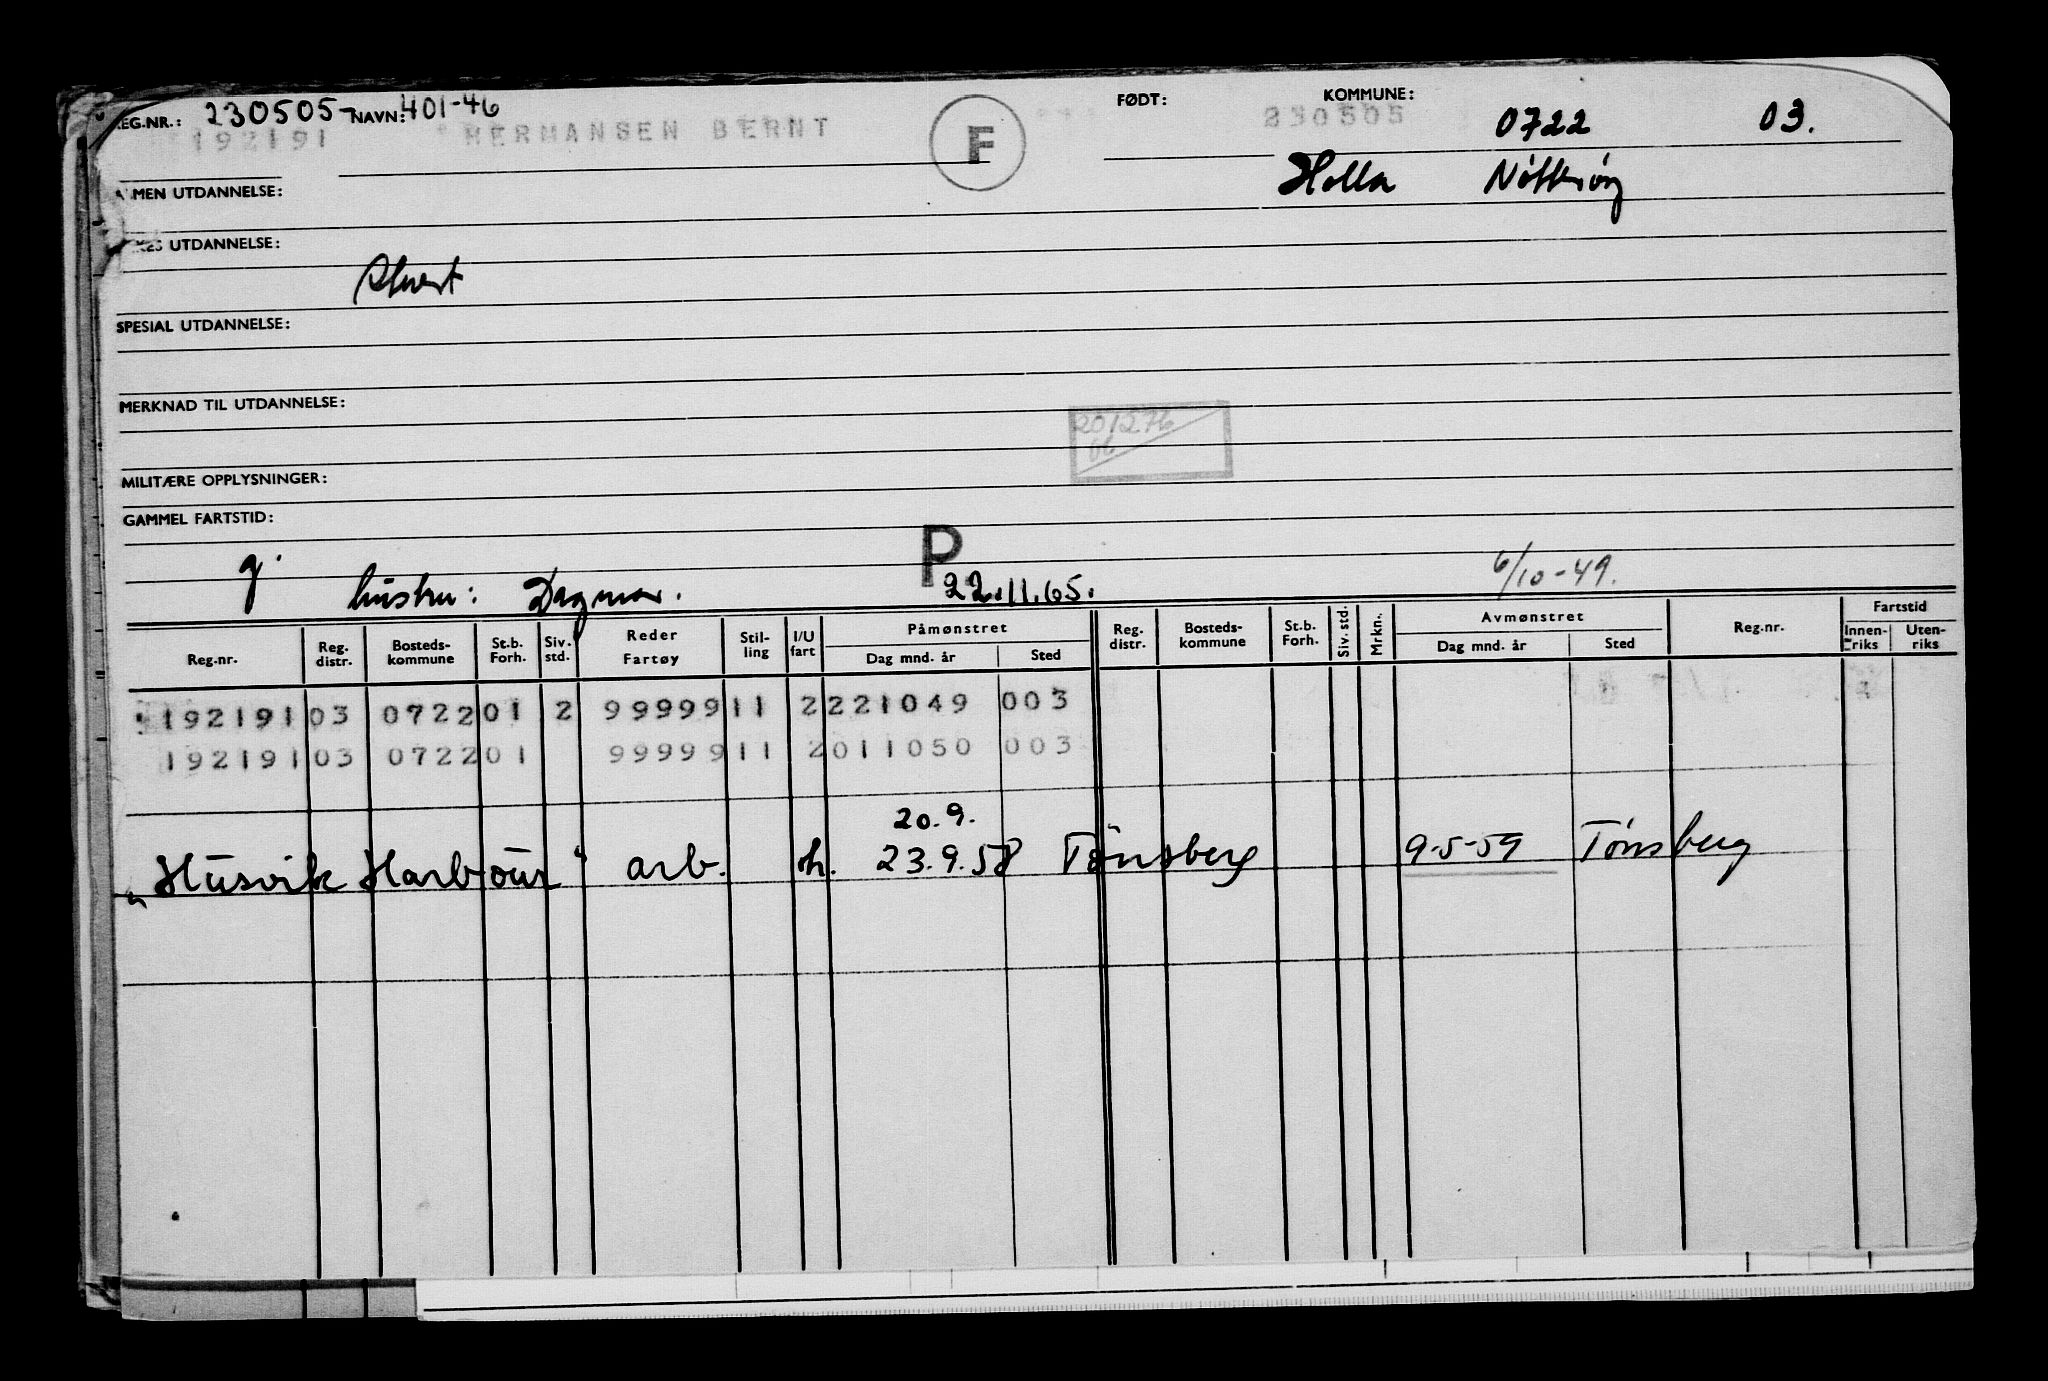 REG.NR.: 230505- NAVN: 401-46 FØDT: KOMMUNE:
192191 HERMANSEN BERNT F 230505 0722 03.
Holla Nøtterøy
UTDANNELSE:
UTDANNELSE:
SPESIAL UTDANNELSE:
MERKNAD TIL UTDANNELSE:
201276
MILITÆRE OPPLYSNINGER:
GAMMEL FARTSTID:
g. hustru: Dagmar. P 22.11.65. 6/10-49.
Reg.nr. Reg. distr. Bosteds-kommune St.b. Forh. Siv. std. Reder Fartøy Stil-ling I/U fart Påmønstret Dag mnd. år Sted Reg. distr. Bosteds-kommune St.b. Forh. Siv. std. Mrkn. Avmønstret Dag mnd. år Sted Reg.nr. Fartstid Innen-riks Uten-riks
192191 03 0722 01 2 99999 11 2 221049 003
192191 03 0722 01 99999 11 2 011050 003
20.9.
„Husvik Harbour“ arb. h. 23.9.58 Tønsberg 9-5-59 Tønsberg